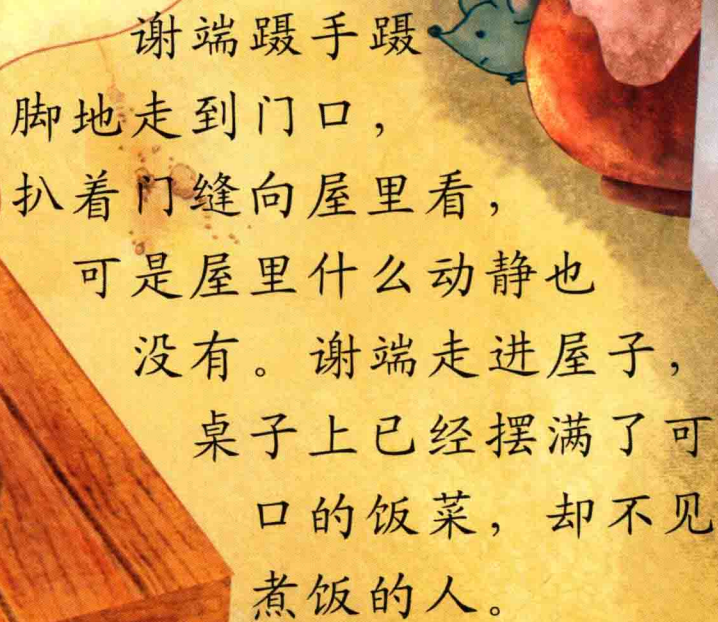 谢端蹑手蹑
脚地走到门口，
扒着门缝向屋里看，
可是屋里什么动静也
没有。谢端走进屋子，
桌子上已经摆满了可
口的饭菜，却不见
煮饭的人。